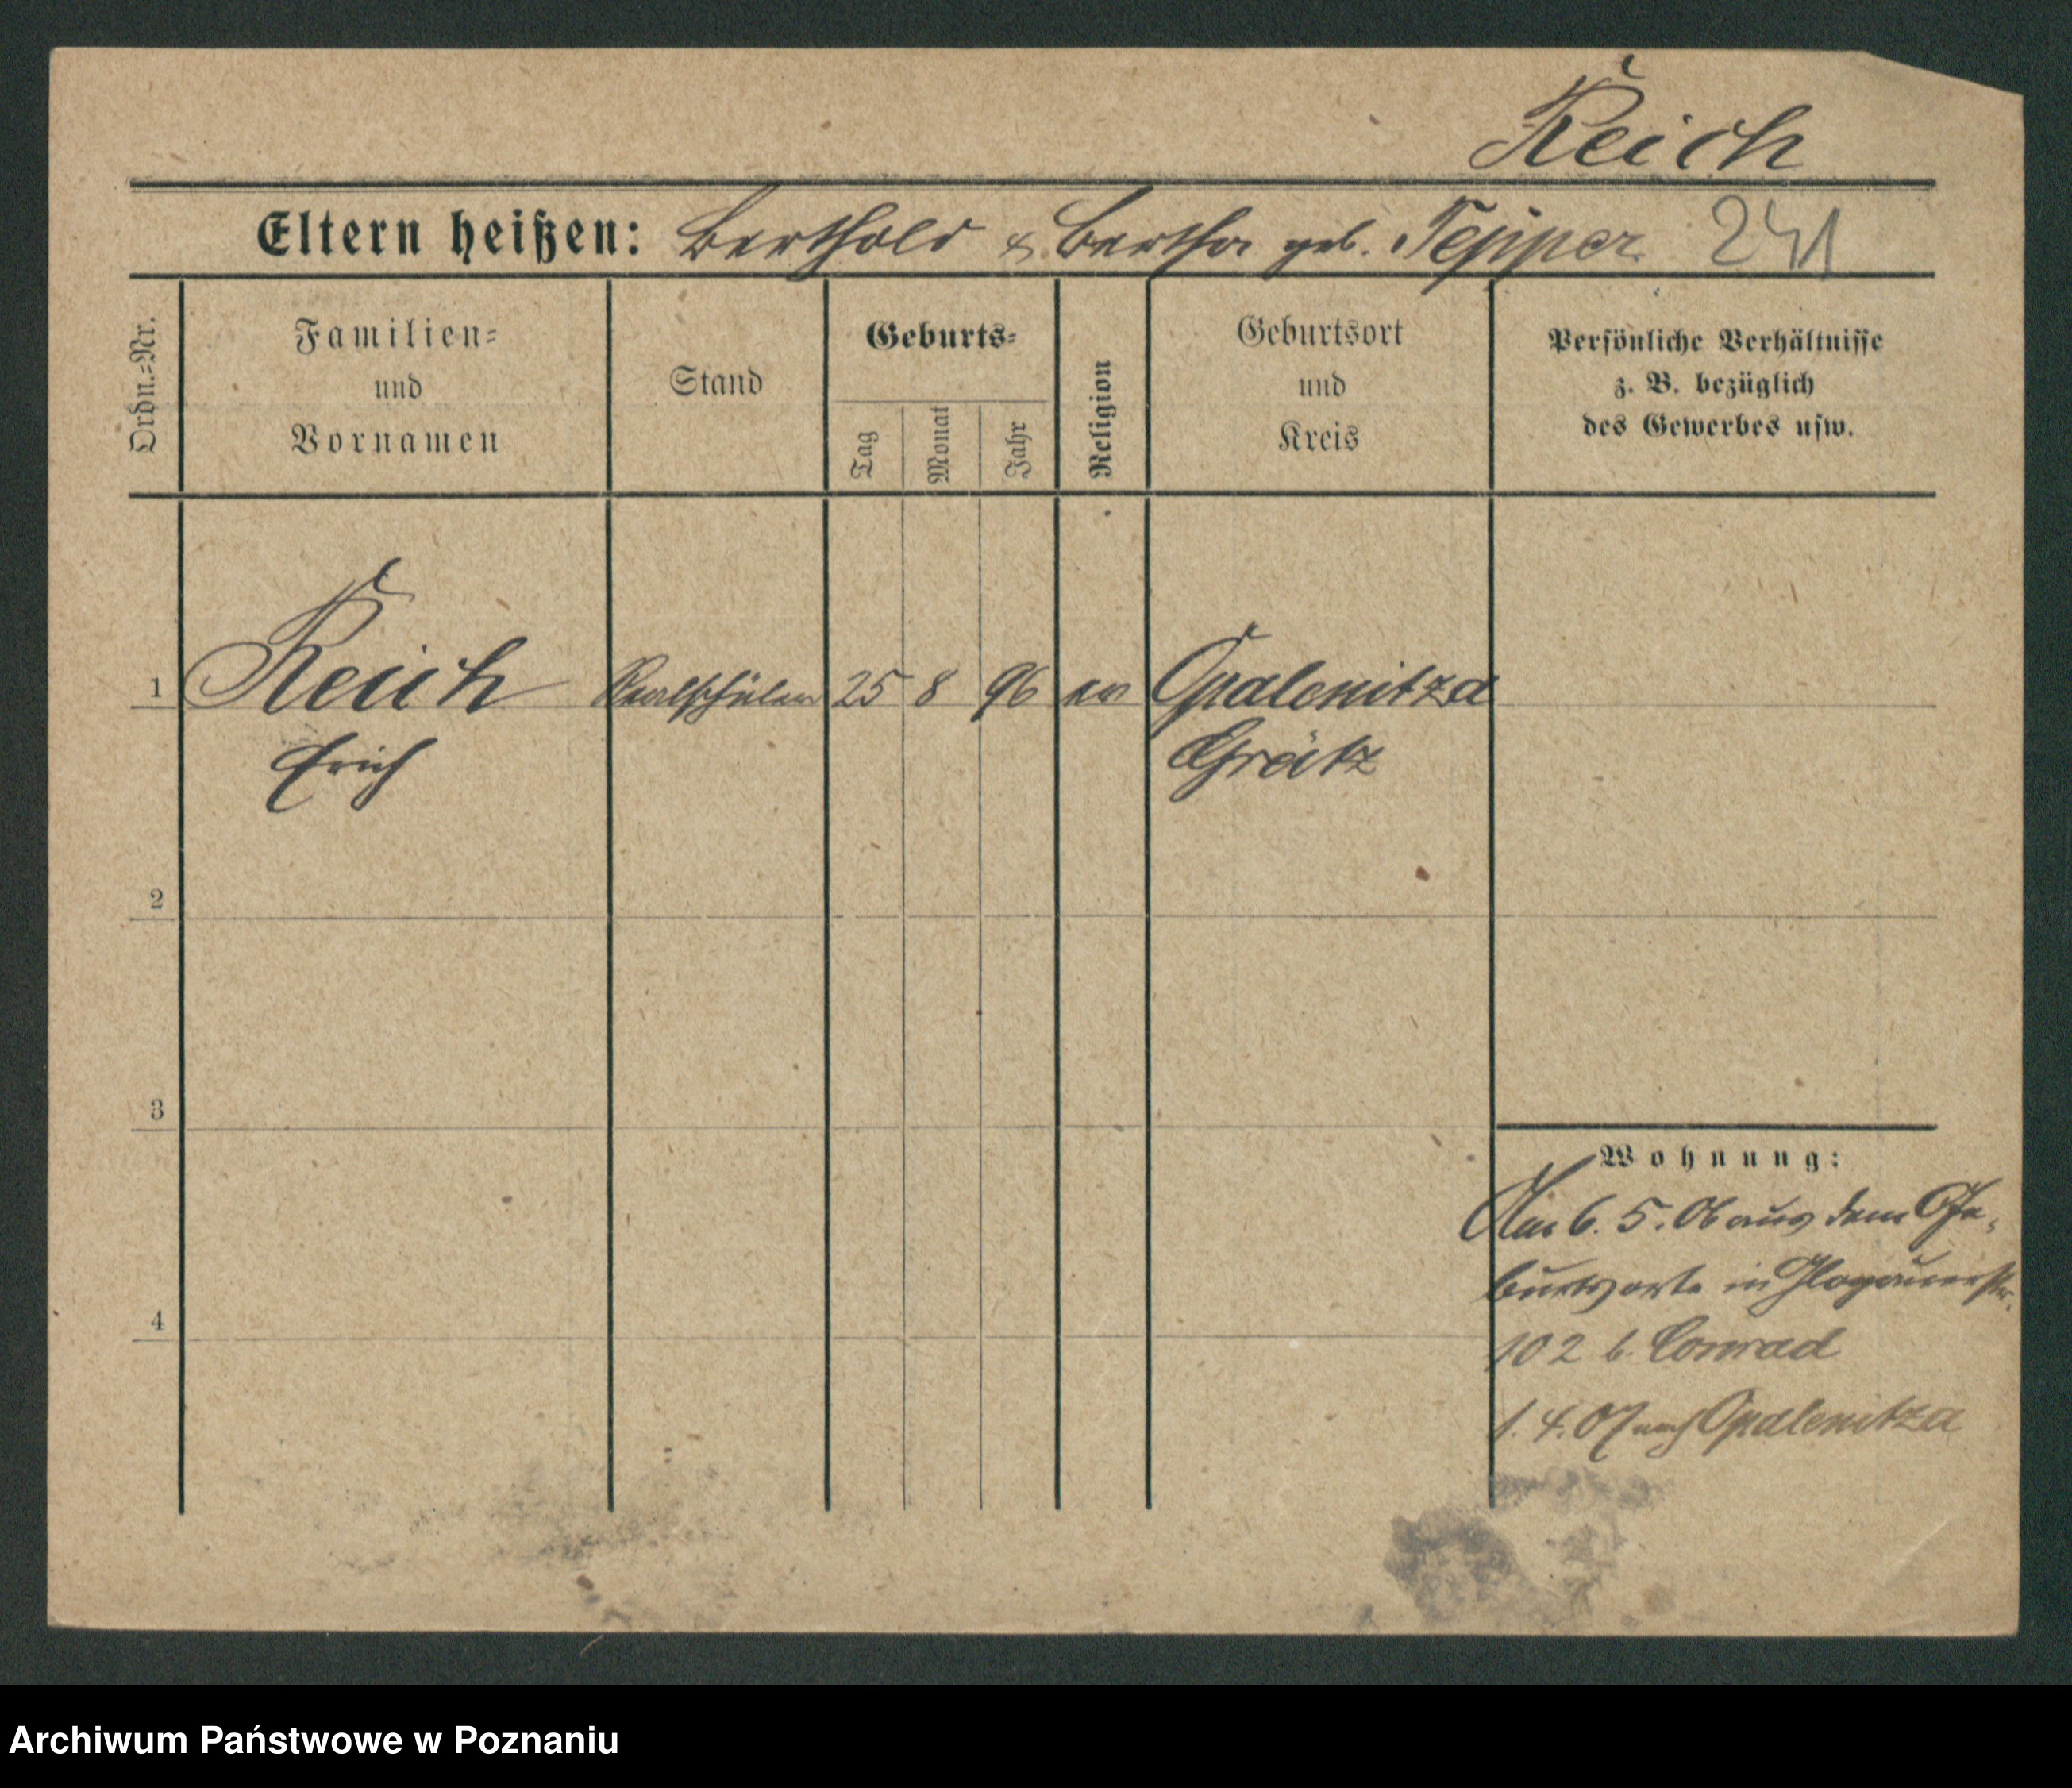 Reich
Eltern heißen: Berthold & Bertha geb. Tepper 241
Ordn.-Nr.
Familien-
und
Vornamen
Stand
Geburts-
Tag
Monat
Jahr
Religion
Geburtsort
und
Kreis
Persönliche Verhältnisse
z. B. bezüglich
des Gewerbes usw.
1 Reich Realschüler 25 8 96 ev Opalenitza
Erich Grätz
2
3
4
Wohnung:
Am 6. 5. 06 aus dem Ge-
burtsorte in Glogauerstr.
102 b. Conrad
1. 4. 07 nach Opalenitza
Archiwum Państwowe w Poznaniu